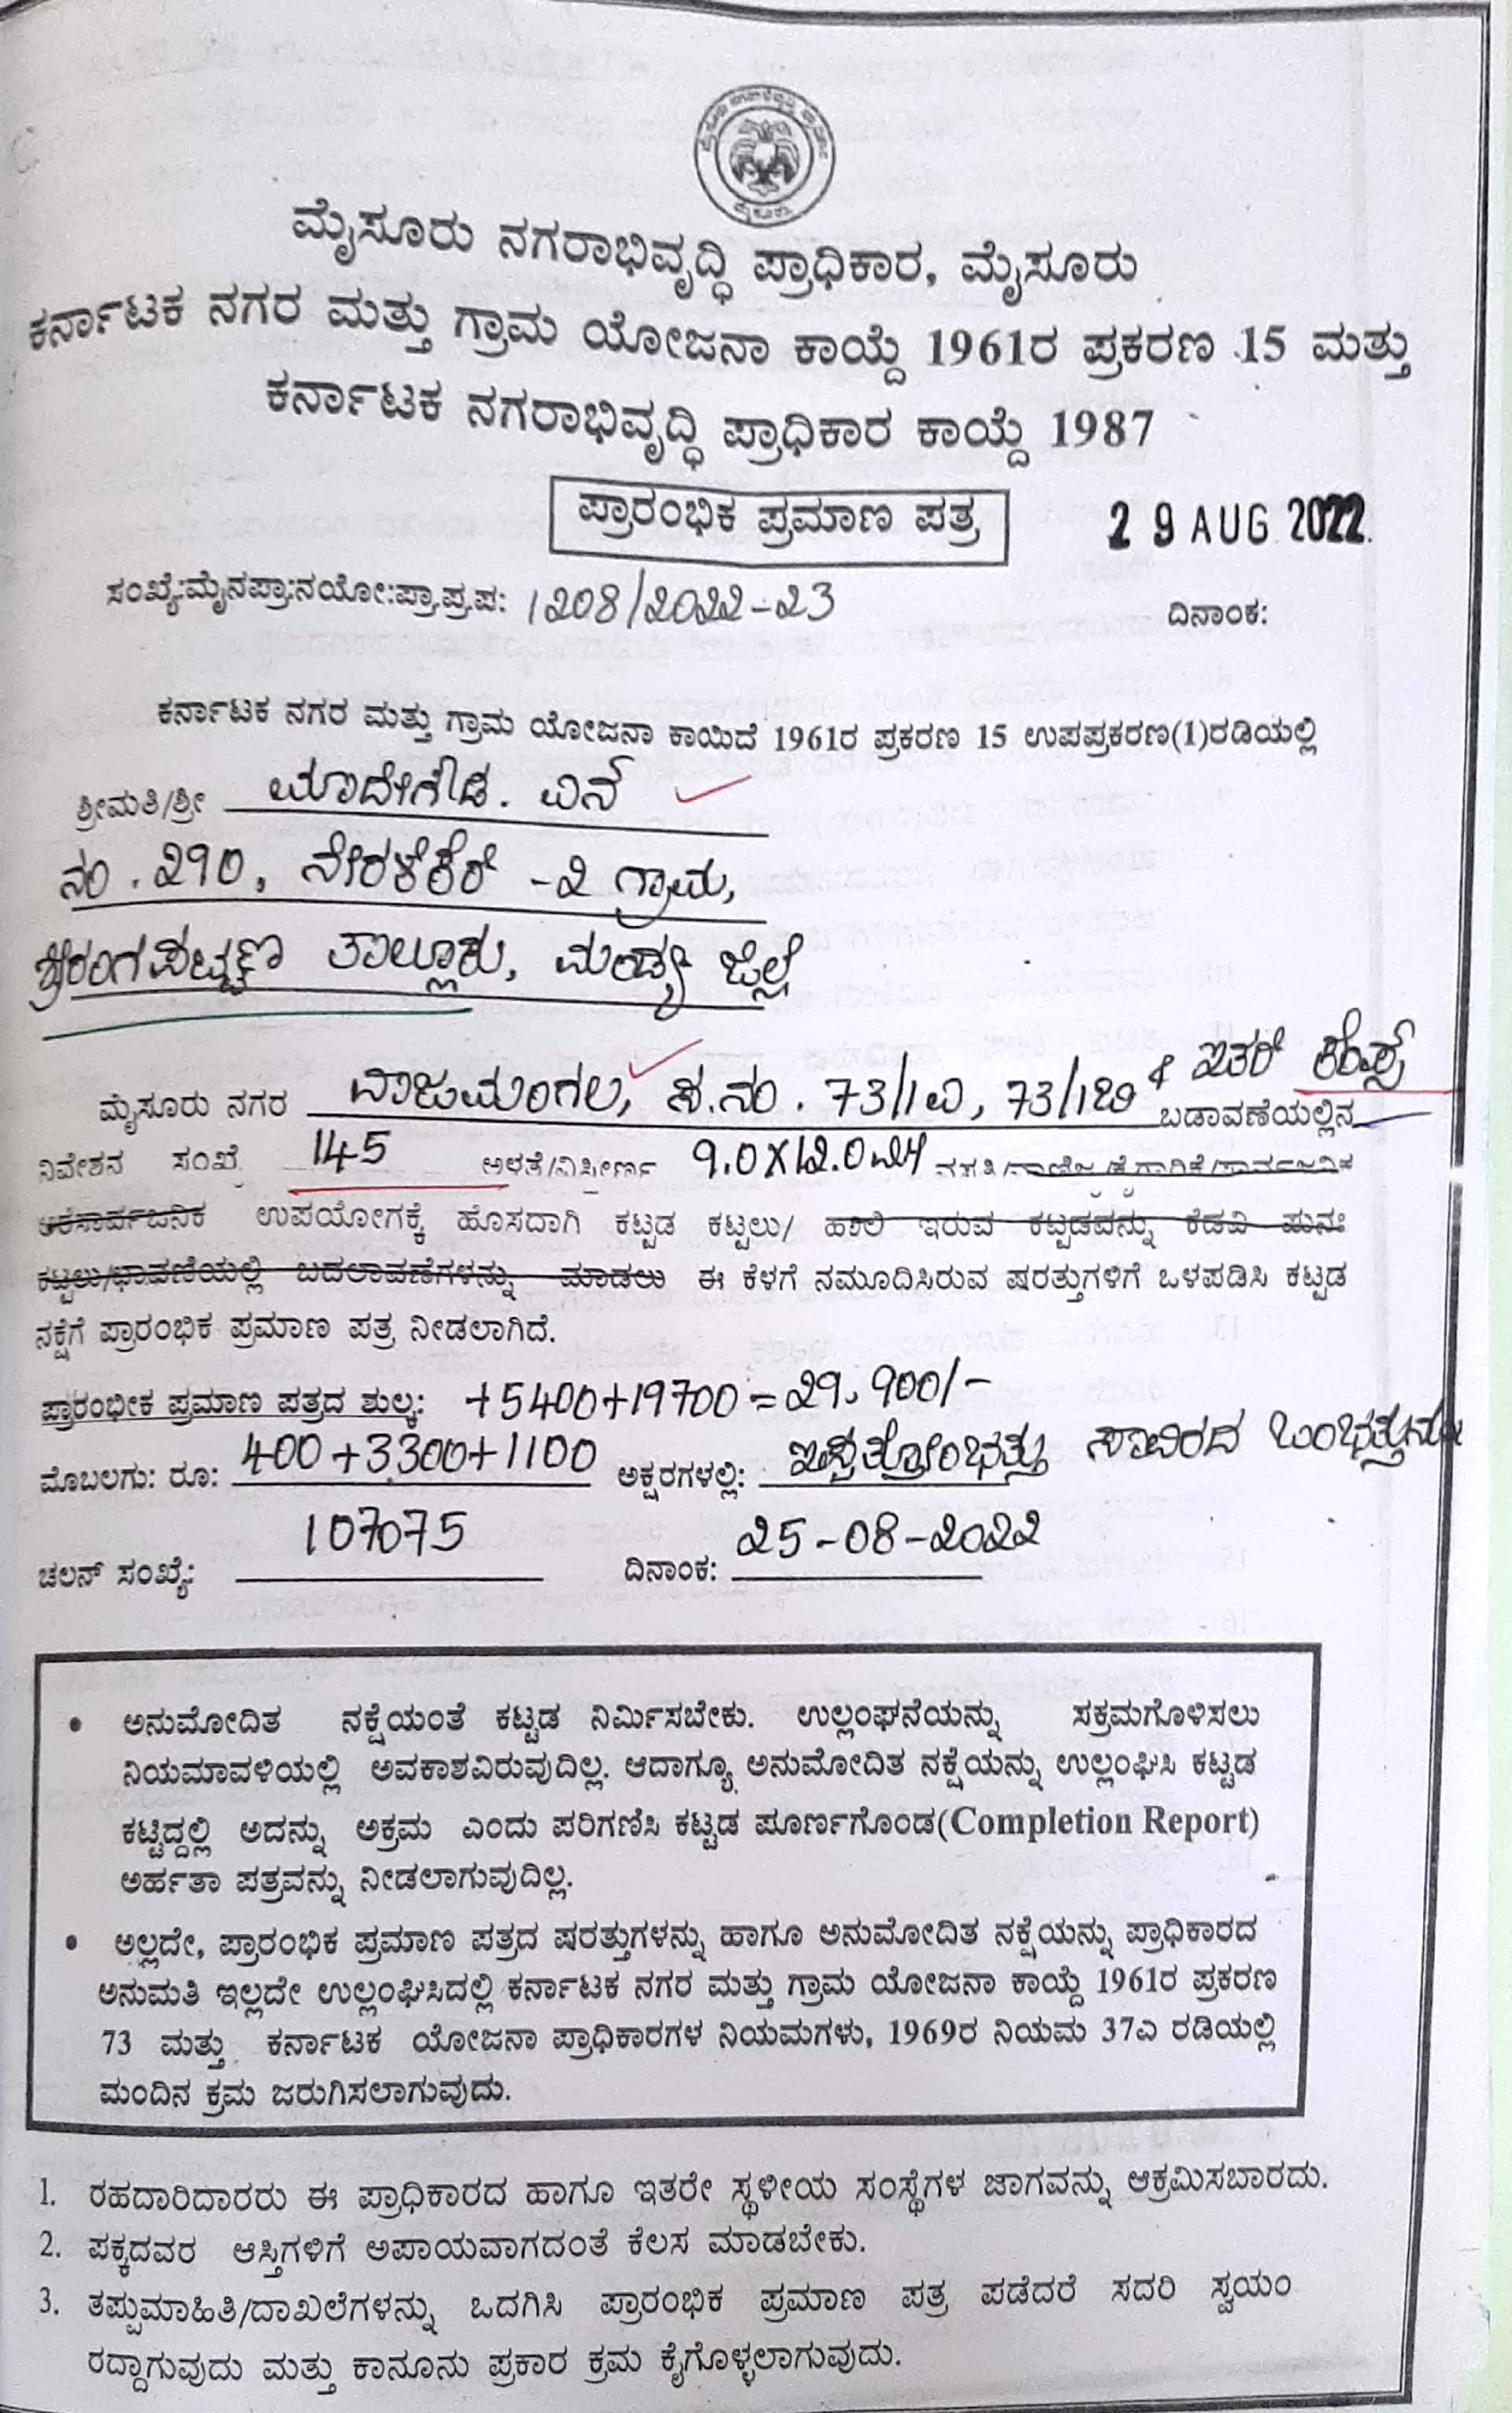 ಮೈಸೂರು ನಗರಾಭಿವೃದ್ಧಿ ಪ್ರಾಧಿಕಾರ, ಮೈಸೂರು
ಕರ್ನಾಟಕ ನಗರ ಮತ್ತು ಗ್ರಾಮ ಯೋಜನಾ ಕಾಯ್ದೆ 1961ರ ಪ್ರಕರಣ 15 ಮತ್ತು
ಕರ್ನಾಟಕ ನಗರಾಭಿವೃದ್ಧಿ ಪ್ರಾಧಿಕಾರ ಕಾಯ್ದೆ 1987
ಪ್ರಾರಂಭಿಕ ಪ್ರಮಾಣ ಪತ್ರ
29 AUG 2022
ಸಂಖ್ಯೆ:ಮೈನಪ್ರಾ:ನಯೋ:ಪ್ರಾ.ಪ್ರ.ಪ: 1208/2022-23 ದಿನಾಂಕ:
ಕರ್ನಾಟಕ ನಗರ ಮತ್ತು ಗ್ರಾಮ ಯೋಜನಾ ಕಾಯಿದೆ 1961ರ ಪ್ರಕರಣ 15 ಉಪಪ್ರಕರಣ(1)ರಡಿಯಲ್ಲಿ
ಶ್ರೀಮತಿ/ಶ್ರೀ ಮಾದೇಗೌಡ. ಎನ್
ನಂ. 290, ನೇರಳೆಕೆರೆ -2 ಗ್ರಾಮ,
ಶ್ರೀರಂಗಪಟ್ಟಣ ತಾಲ್ಲೂಕು, ಮಂಡ್ಯ ಜಿಲ್ಲೆ
& ಇತರೆ
ಮೈಸೂರು ನಗರ ವಾಜಮಂಗಲ, ಸ.ನಂ. 73/1ಎ, 73/1ಬಿ ಬಡಾವಣೆಯಲ್ಲಿನ
ನಿವೇಶನ ಸಂಖ್ಯೆ 145 ಅಳತೆ/ವಿಸ್ತೀರ್ಣ 9.0X12.0 ವಸತಿ/ವಾಣಿಜ್ಯ/ಕೈಗಾರಿಕೆ/ಸಾರ್ವಜನಿಕ
ಅರೆಸಾರ್ವಜನಿಕ ಉಪಯೋಗಕ್ಕೆ ಹೊಸದಾಗಿ ಕಟ್ಟಡ ಕಟ್ಟಲು/ ಹಾಲಿ ಇರುವ ಕಟ್ಟಡವನ್ನು ಕೆಡವಿ ಪುನಃ
ಕಟ್ಟಲು/ಛಾವಣಿಯಲ್ಲಿ ಬದಲಾವಣೆಗಳನ್ನು ಮಾಡಲು ಈ ಕೆಳಗೆ ನಮೂದಿಸಿರುವ ಷರತ್ತುಗಳಿಗೆ ಒಳಪಡಿಸಿ ಕಟ್ಟಡ
ನಕ್ಷೆಗೆ ಪ್ರಾರಂಭಿಕ ಪ್ರಮಾಣ ಪತ್ರ ನೀಡಲಾಗಿದೆ.
ಪ್ರಾರಂಭೀಕ ಪ್ರಮಾಣ ಪತ್ರದ ಶುಲ್ಕ: +5400+19700=29,900/-
ಮೊಬಲಗು: ರೂ: 400+3300+1100 ಅಕ್ಷರಗಳಲ್ಲಿ: ಇಪ್ಪತ್ತೊಂಭತ್ತು ಸಾವಿರದ ಒಂಭತ್ತುನೂ
ಚಲನ್ ಸಂಖ್ಯೆ: 107075 ದಿನಾಂಕ: 25-08-2022
• ಅನುಮೋದಿತ ನಕ್ಷೆಯಂತೆ ಕಟ್ಟಡ ನಿರ್ಮಿಸಬೇಕು. ಉಲ್ಲಂಘನೆಯನ್ನು ಸಕ್ರಮಗೊಳಿಸಲು
ನಿಯಮಾವಳಿಯಲ್ಲಿ ಅವಕಾಶವಿರುವುದಿಲ್ಲ. ಆದಾಗ್ಯೂ ಅನುಮೋದಿತ ನಕ್ಷೆಯನ್ನು ಉಲ್ಲಂಘಿಸಿ ಕಟ್ಟಡ
ಕಟ್ಟಿದ್ದಲ್ಲಿ ಅದನ್ನು ಅಕ್ರಮ ಎಂದು ಪರಿಗಣಿಸಿ ಕಟ್ಟಡ ಪೂರ್ಣಗೊಂಡ(Completion Report)
ಅರ್ಹತಾ ಪತ್ರವನ್ನು ನೀಡಲಾಗುವುದಿಲ್ಲ.
• ಅಲ್ಲದೇ, ಪ್ರಾರಂಭಿಕ ಪ್ರಮಾಣ ಪತ್ರದ ಷರತ್ತುಗಳನ್ನು ಹಾಗೂ ಅನುಮೋದಿತ ನಕ್ಷೆಯನ್ನು ಪ್ರಾಧಿಕಾರದ
ಅನುಮತಿ ಇಲ್ಲದೇ ಉಲ್ಲಂಘಿಸಿದಲ್ಲಿ ಕರ್ನಾಟಕ ನಗರ ಮತ್ತು ಗ್ರಾಮ ಯೋಜನಾ ಕಾಯ್ದೆ 1961ರ ಪ್ರಕರಣ
73 ಮತ್ತು ಕರ್ನಾಟಕ ಯೋಜನಾ ಪ್ರಾಧಿಕಾರಗಳ ನಿಯಮಗಳು, 1969ರ ನಿಯಮ 37ಎ ರಡಿಯಲ್ಲಿ
ಮಂದಿನ ಕ್ರಮ ಜರುಗಿಸಲಾಗುವುದು.
1. ರಹದಾರಿದಾರರು ಈ ಪ್ರಾಧಿಕಾರದ ಹಾಗೂ ಇತರೇ ಸ್ಥಳೀಯ ಸಂಸ್ಥೆಗಳ ಜಾಗವನ್ನು ಆಕ್ರಮಿಸಬಾರದು.
2. ಪಕ್ಕದವರ ಆಸ್ತಿಗಳಿಗೆ ಅಪಾಯವಾಗದಂತೆ ಕೆಲಸ ಮಾಡಬೇಕು.
3. ತಪ್ಪುಮಾಹಿತಿ/ದಾಖಲೆಗಳನ್ನು ಒದಗಿಸಿ ಪ್ರಾರಂಭಿಕ ಪ್ರಮಾಣ ಪತ್ರ ಪಡೆದರೆ ಸದರಿ ಸ್ವಯಂ
ರದ್ದಾಗುವುದು ಮತ್ತು ಕಾನೂನು ಪ್ರಕಾರ ಕ್ರಮ ಕೈಗೊಳ್ಳಲಾಗುವುದು.